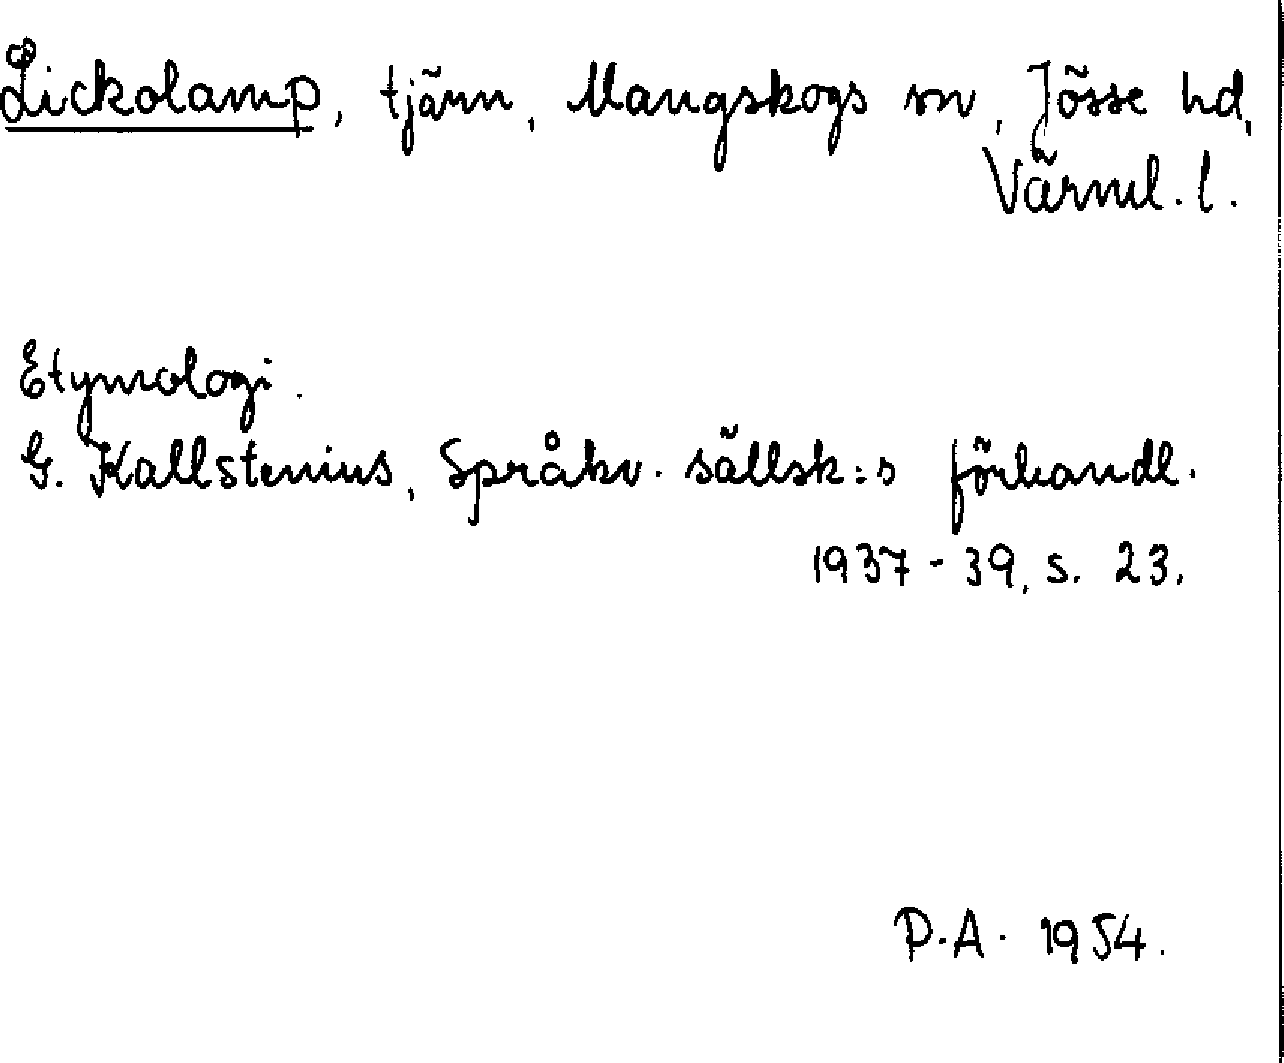 Lickolamp, tjärn, Mangskogs sn, Jösse hd,
Värml. l.
Etymologi.
G. Kallstenius, Språkv. sällsk:s förhandl.
1937-39, s. 23.
P.A. 1954.